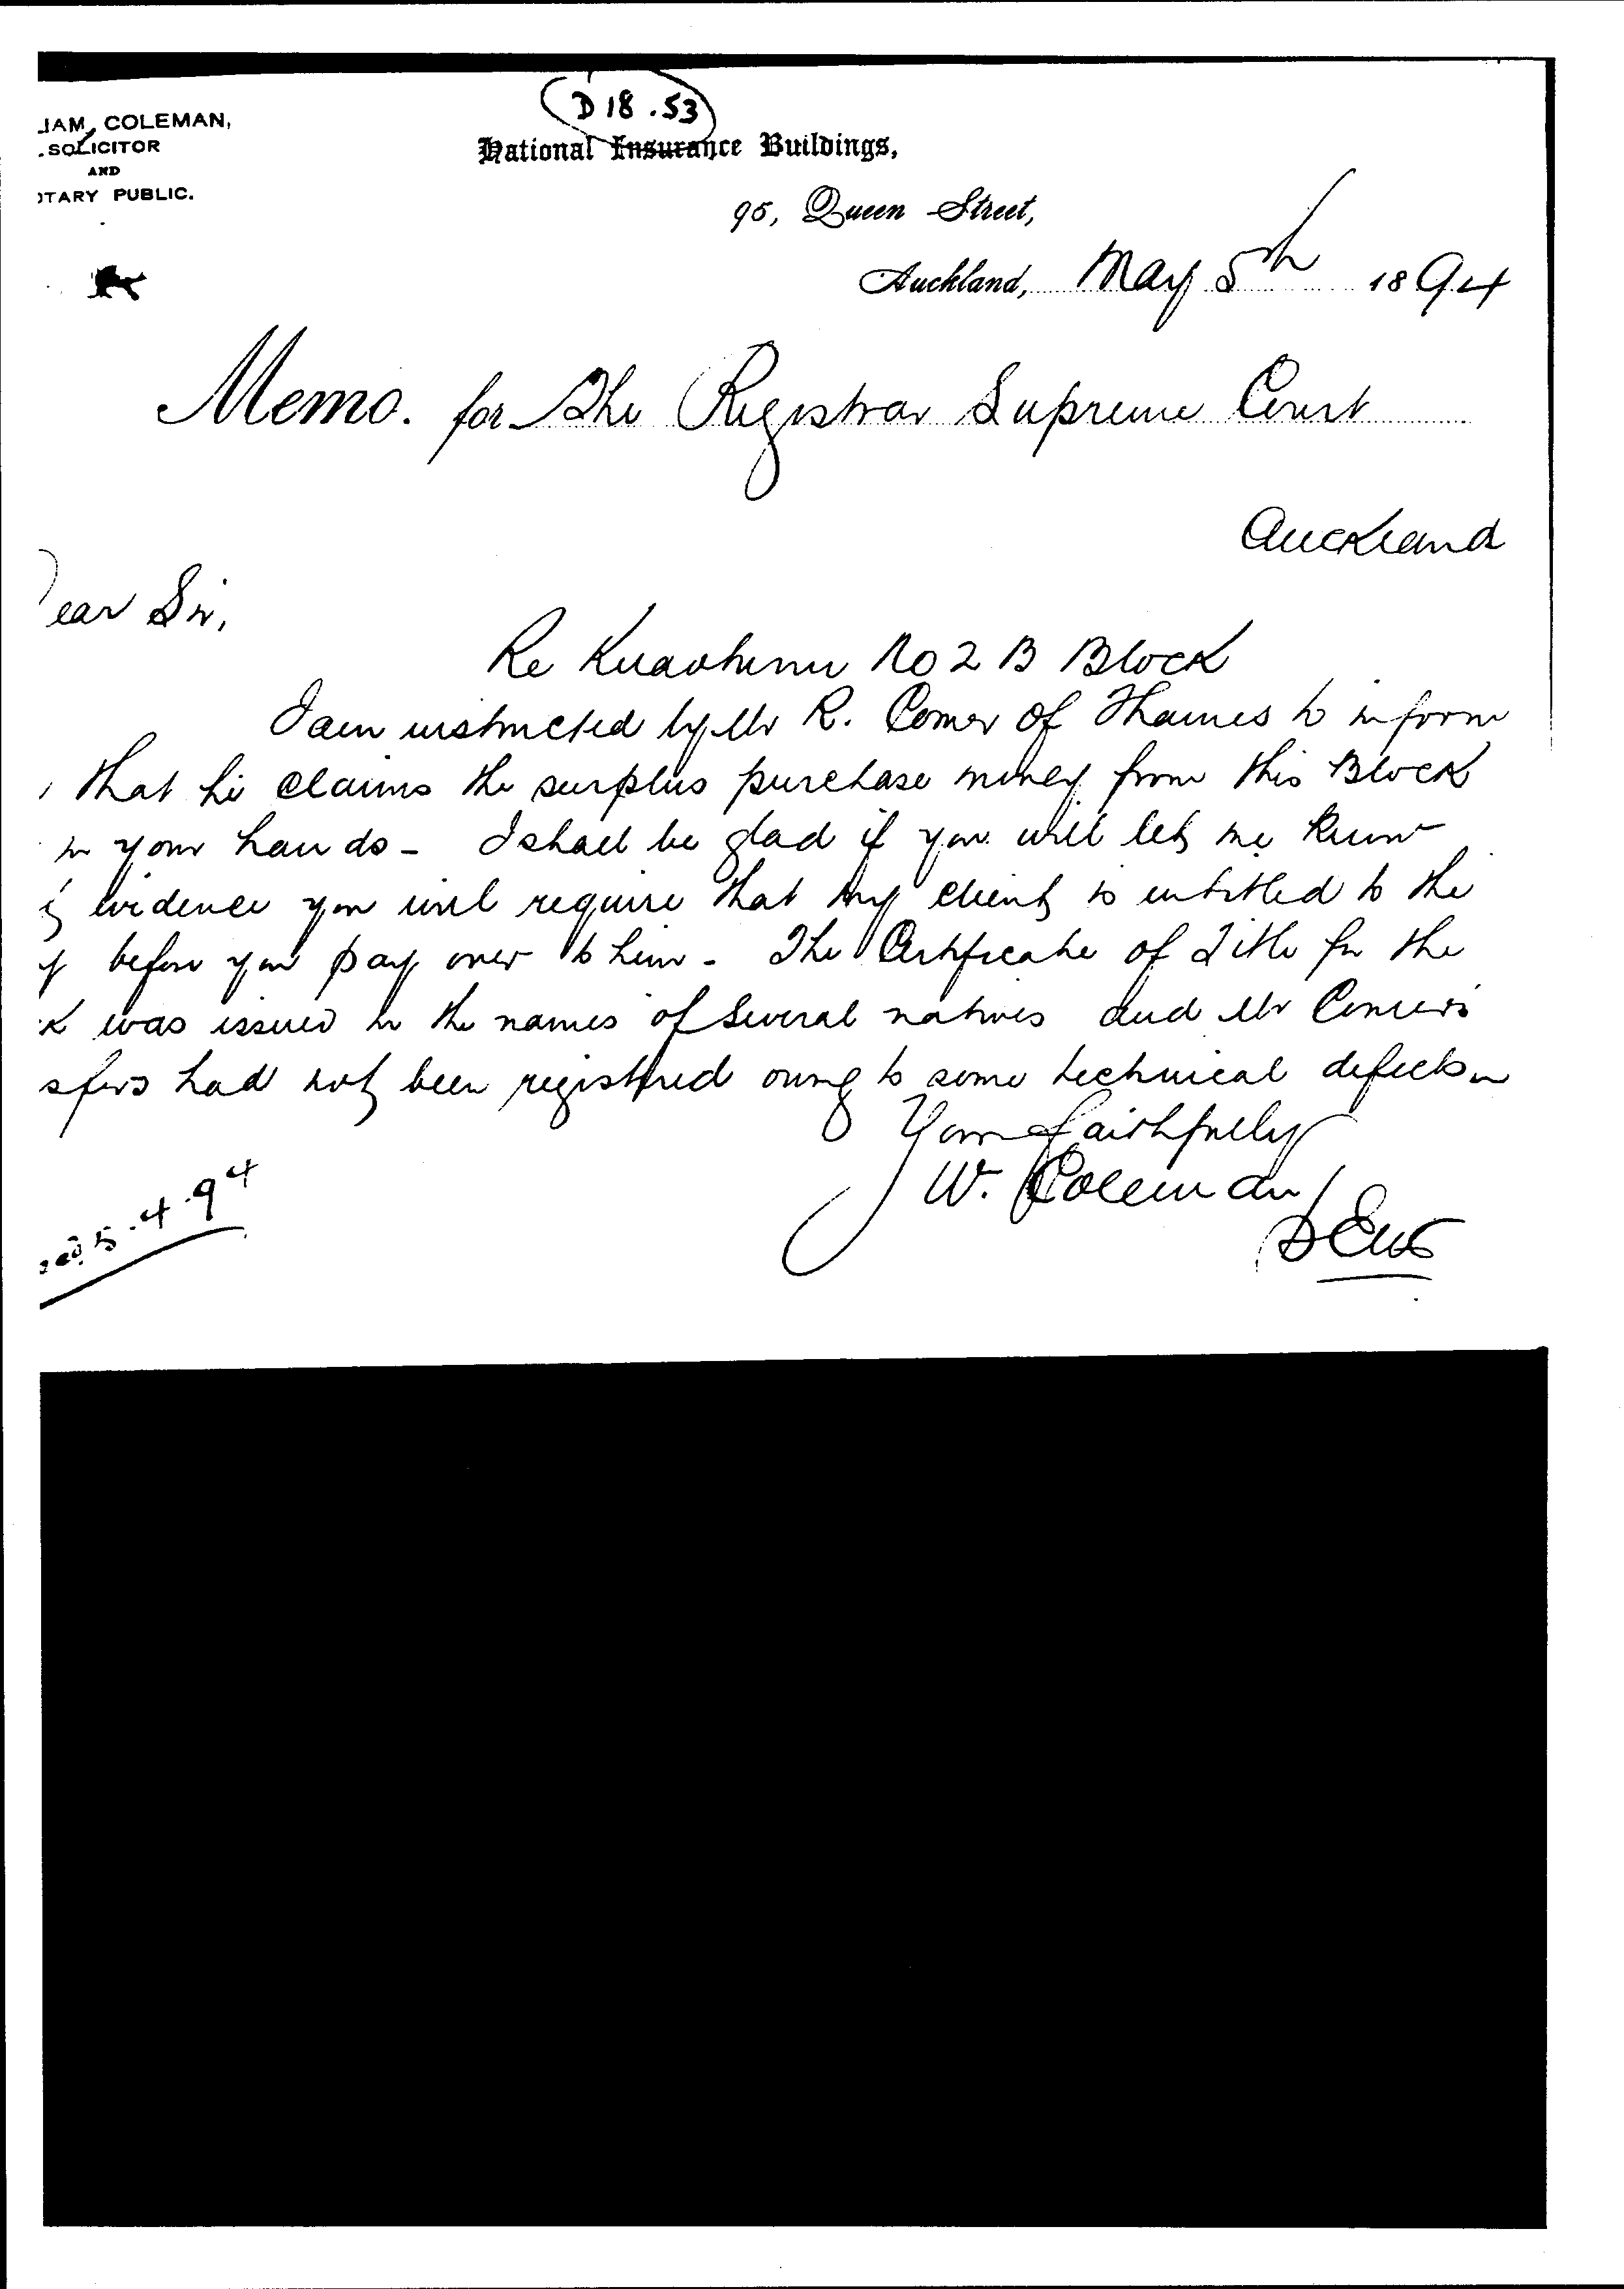 D 18.53
IAM COLEMAN,
SOLICITOR
AND
OTARY PUBLIC.
National Insurance Buildings,
95, Queen Street,
Auckland, May 5th 1894
Memo. for The Registrar Supreme Court
Auckland
Dear Sir,
Re Kuaohunui No 2 B Block
I am instructed by Mr R. Comer of Thames to inform
that he claims the surplus purchase money from this Block
in your hands - I shall be glad if you will let me know
evidence you will require that my client is entitled to the
before you pay over to him - The Certificate of Title for the
k was issued in the names of several natives and Mr Comer's
sfers had not been registered owing to some technical defects
Yours faithfully
W. Coleman
5.4.94